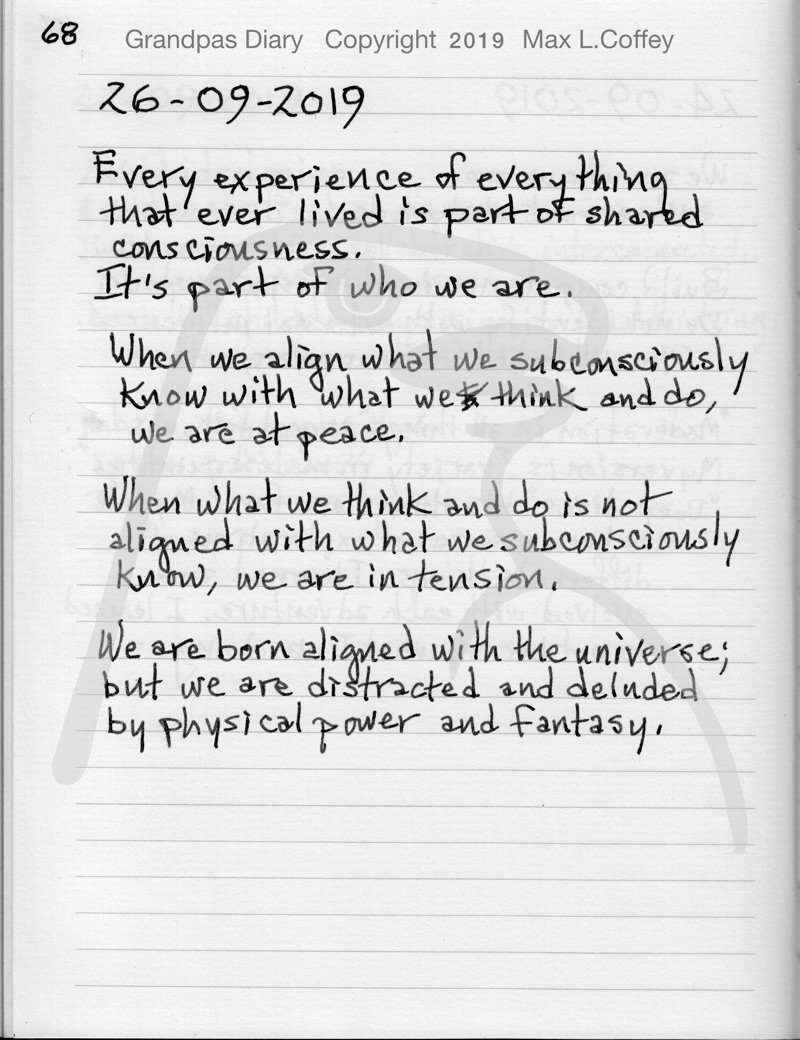 68
Grandpas Diary Copyright 2019 Max L.Coffey
26-09-2019
Every experience of everything
that ever lived is part of shared
consciousness.
It's part of who we are.
When we align what we subconsciously
know with what we think and do,
we are at peace.
When what we think and do is not
aligned with what we subconsciously
know, we are in tension.
We are born aligned with the universe;
but we are distracted and deluded
by physical power and fantasy.